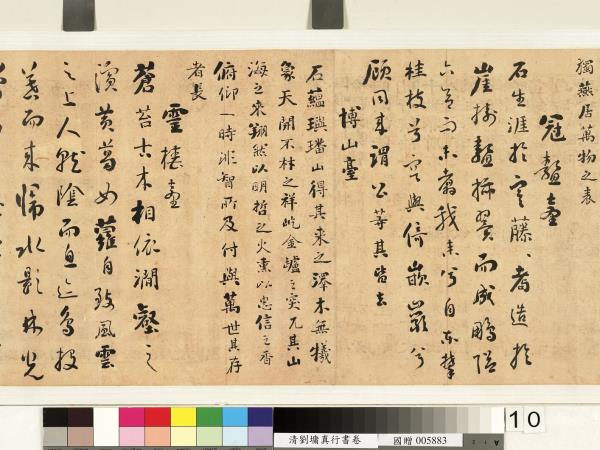 獨燕居萬物之表
冠鼇臺
石生涯於寒藤耆造於
崖樹鼇插翼而成鵬隘
六合而未翥我來兮自東攀
桂枝兮容與倚嵌巖兮
顧同來謂公等其皆去
博山臺
石蘊璵璠山得其來之澤木無犧
象天開不材之祥屹金爐之突兀其山
海之來翔然以明哲之火熏以忠信之香
俯仰一時非智所及付與萬世其存
者長
靈椿臺
蒼苔古木相依澗壑之
濱黃葛女蘿自致風雲
之上人就陰而息迹鳥投
暮而來歸水影林光
清劉墉真行書卷
國贈 005883
10